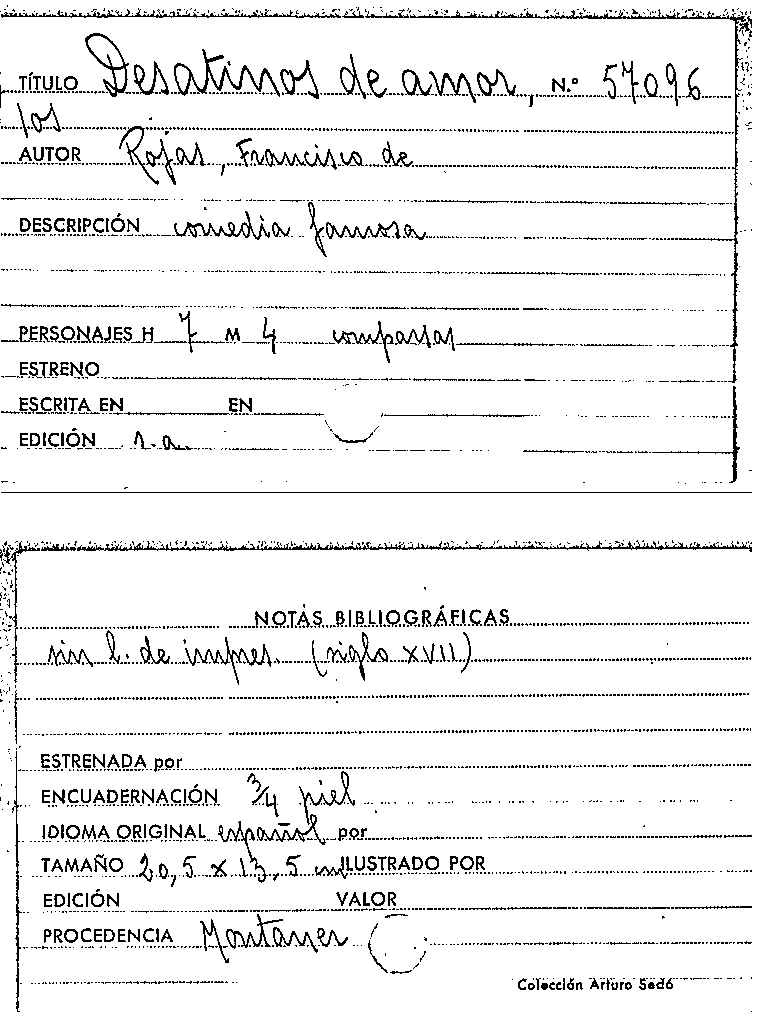 TÍTULO Desatinos de amor, N.º 57096
los
AUTOR Rojas, Francisco de
DESCRIPCIÓN comedia famosa
PERSONAJES H 7 M 4 comparsas
ESTRENO
ESCRITA EN EN
EDICIÓN s.a.
NOTAS BIBLIOGRÁFICAS
sin l. de impres. (siglo XVII)
ESTRENADA por
ENCUADERNACIÓN 3/4 piel
IDIOMA ORIGINAL español por
TAMAÑO 20,5 x 13,5 cm ILUSTRADO POR
EDICIÓN VALOR
PROCEDENCIA Montaner
Colección Arturo Sedó